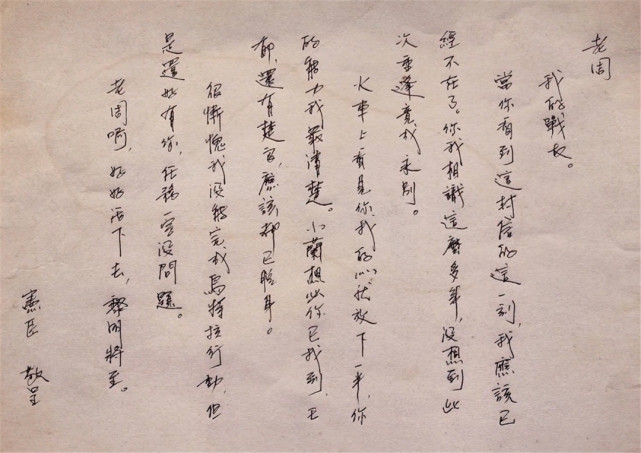 老周
我的戰友。
當你看到這封信的這一刻,我應該已
經不在了。你我相識這麼多年,沒想到此
次重逢竟成永別。
火車上看見你,我的心就放下一半,你
的能力我最清楚。小蘭想必你已找到,王
郁,還有楚良,應該都已脫身。
很慚愧我沒能完成烏特拉行動,但
是還好有你,任務一定沒問題。
老周啊,好好活下去,黎明將至。
憲臣 敬呈